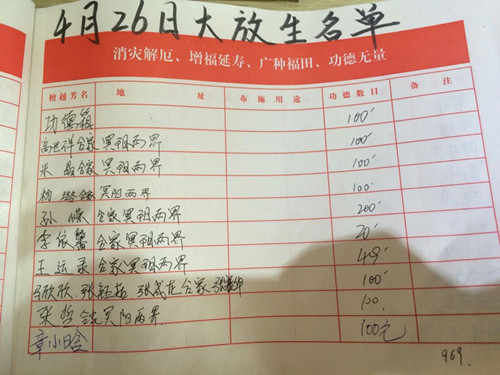 4月26日大放生名单
消灾解厄、增福延寿、广种福田、功德无量
檀越芳名 地 址 布施用途 功德数目 备 注
功德箱 100
高世祥合家冥阳两界 100
米 晶合家冥阳两界 100
合家冥阳两界 100
孙 合家冥阳两界 200
李依馨合家冥阳两界 20
王运录合家冥阳两界 49
欣欣 张钰 张 合家 100
张哲合家冥阳两界 100
章小晗 100元
969